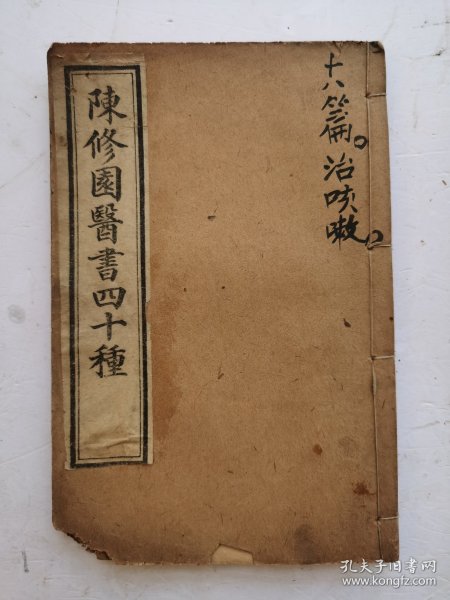 十八篇。治咳嗽。
陳修園醫書四十種
孔夫子旧书网
www.kongfz.com